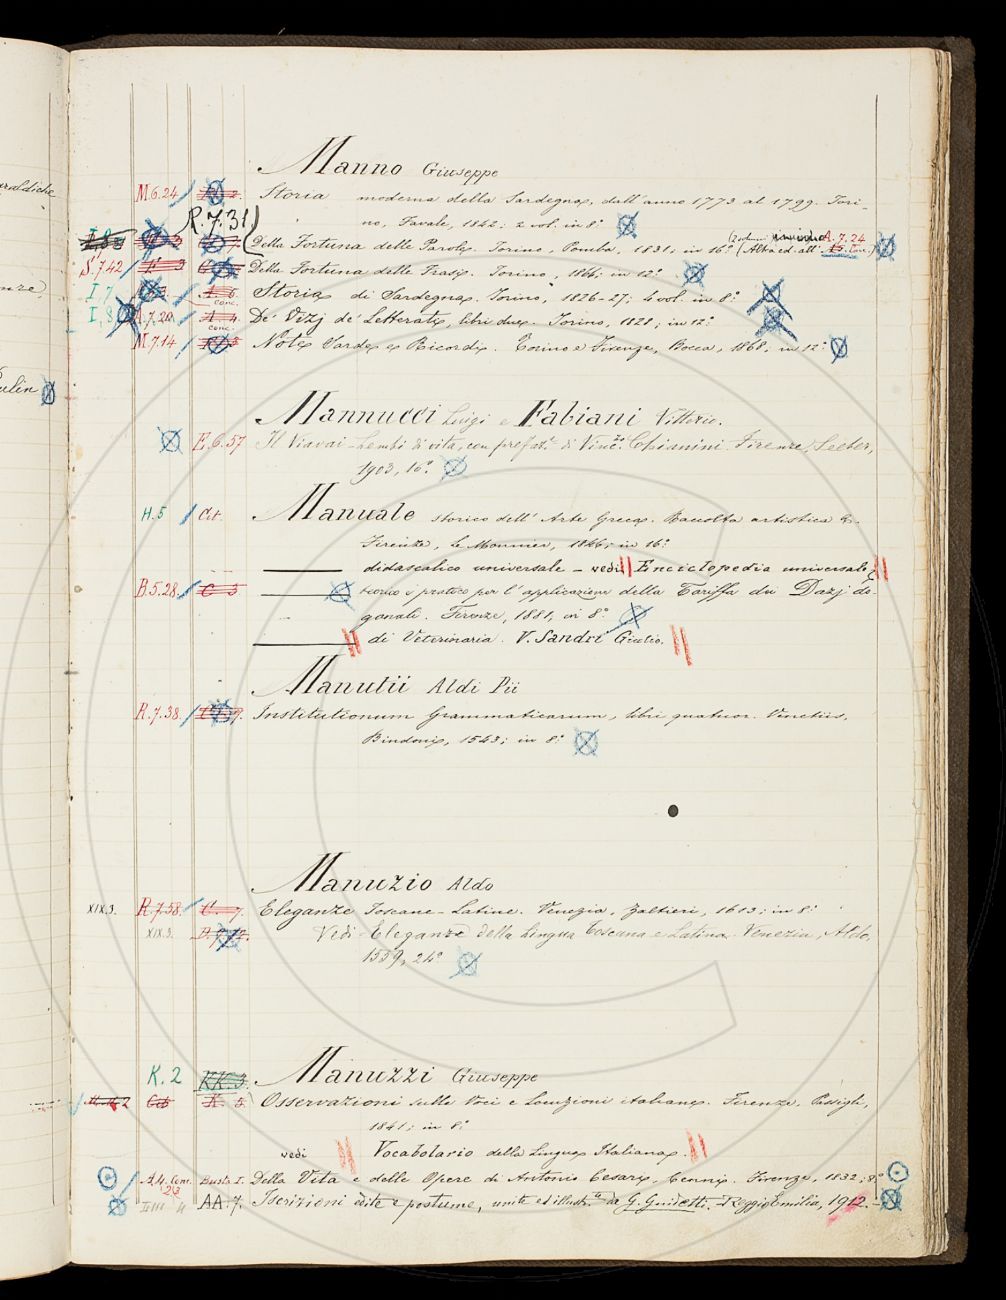 Manno Giuseppe
M.6.24 Storia moderna della Sardegna, dall'anno 1773 al 1799. Tori-
no, Favale, 1842; 2 vol. in 8.º
R.7.31
Della Fortuna delle Parole. Torino, Pomba, 1831; in 16.º (Altra ed. all' A.7.24
S.7.42 Della Fortuna delle Frasi. Torino, 1866; in 12.º
I,7 A. 6. conc. Storia di Sardegna. Torino, 1826-27; 4 vol. in 8.º
I,8 A.7.20 A. 4. conc. De' Vizj de' Letterati, libri due. Torino, 1828; in 12.º
M.7.14 Note Sarde e Ricordi. Torino e Firenze, Bocca, 1868; in 12.º
Mannucci Luigi e Fabiani Vittorio.
E.6.57 Il Viavai - Lembi di vita, con prefaz.e di Vinc.o Chianini. Firenze, Seeber,
1903, 16.º
Manuale storico dell' Arte Greca. Raccolta artistica &.
H.5 Cit.
Firenze, Le Monnier, 1846; in 16.º
didascalico universale - vedi Enciclopedia universale
B.5.28 C 5 teorico e pratico per l'applicazione della Tariffa dei Dazj do-
ganali. Firenze, 1881, in 8.º
di Veterinaria. V. Sandri Giulio.
Manutii Aldi Pii
R.7.38. Institutionum Grammaticarum, libri quatuor. Venetiis,
Bindoni, 1543; in 8.º
Manuzio Aldo
XIX.3. R.7.58. C 7. Eleganze Toscane-Latine. Venezia, Zaltieri, 1613; in 8.º
XIX.3. Vedi Eleganze della Lingua Toscana e Latina. Venezia, Aldo,
1559, 24.º
K.2 KK.3. Manuzzi Giuseppe
Cit K. 5. Osservazioni sulle Voci e Locuzioni italiane. Firenze, Passigli,
1841; in 8.º
vedi Vocabolario della Lingua Italiana.
Busta I. Della Vita e delle Opere di Antonio Cesari, Cenni. Firenze, 1832; 8.º
AA.7. Iscrizioni edite e postume, unite ed illustr.te da G. Guidetti. - Reggio Emilia, 1912.-